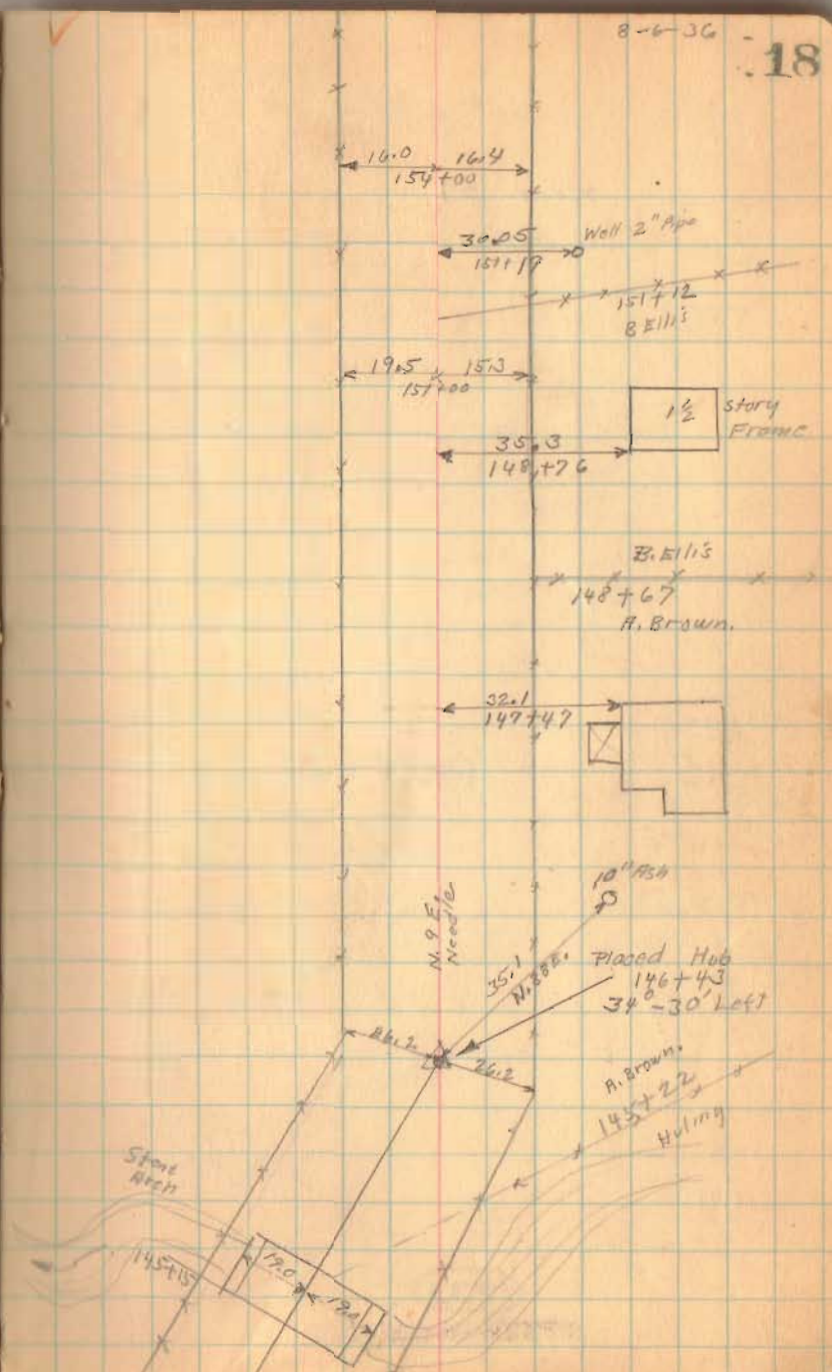 8-6-36
18
16.0 16.4
154+00
30.05
151+19
Well 2" Pipe
151+12
B Ellis
19.5 15.3
151+00
1½ story
Frame
35.3
148+76
B. Ellis
148+67
A. Brown.
32.1
147+47
10" Ash
N. 9 E.
Needle
35.1
N. 38 E.
Placed Hub
146+43
34°-30' Left
26.2
26.2
A. Brown.
145+22
Huling
Stone
Arch
145+15
19.0
19.0